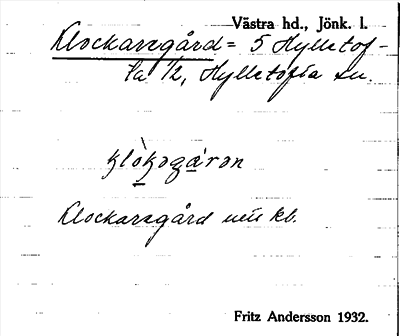 Västra hd., Jönk. l.
Klockaregård = 5 Hylletof-
ta 1/2, Hylletofta sn.
Klockaregård
Fritz Andersson 1932.